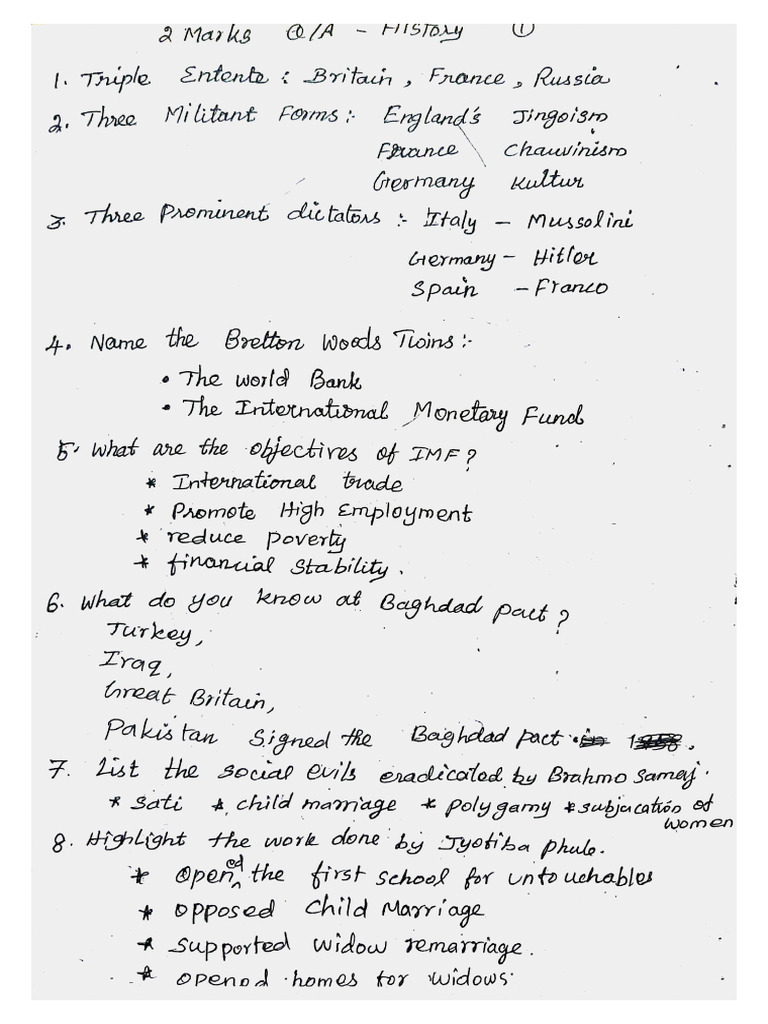 2 Marks Q/A - History ①
1. Triple Entente : Britain, France, Russia
2. Three Militant Forms:- England's Jingoism
France Chauvinism
Germany Kultur
3. Three Prominent dictators :- Italy - Mussolini
Germany - Hitler
Spain - Franco
4. Name the Bretton Woods Twins:-
• The World Bank
• The International Monetary Fund
5. What are the objectives of IMF?
* International trade
* Promote High Employment
* reduce poverty
* financial stability.
6. What do you know at Baghdad pact?
Turkey,
Iraq,
Great Britain,
Pakistan signed the Baghdad pact
7. List the social evils eradicated by Brahmo Samaj.
* Sati * child marriage * polygamy * subjucation of women
8. Highlight the work done by Jyotiba phule.
* Opened the first school for untouchables
* opposed Child Marriage
* supported widow remarriage.
* opened homes for widows.